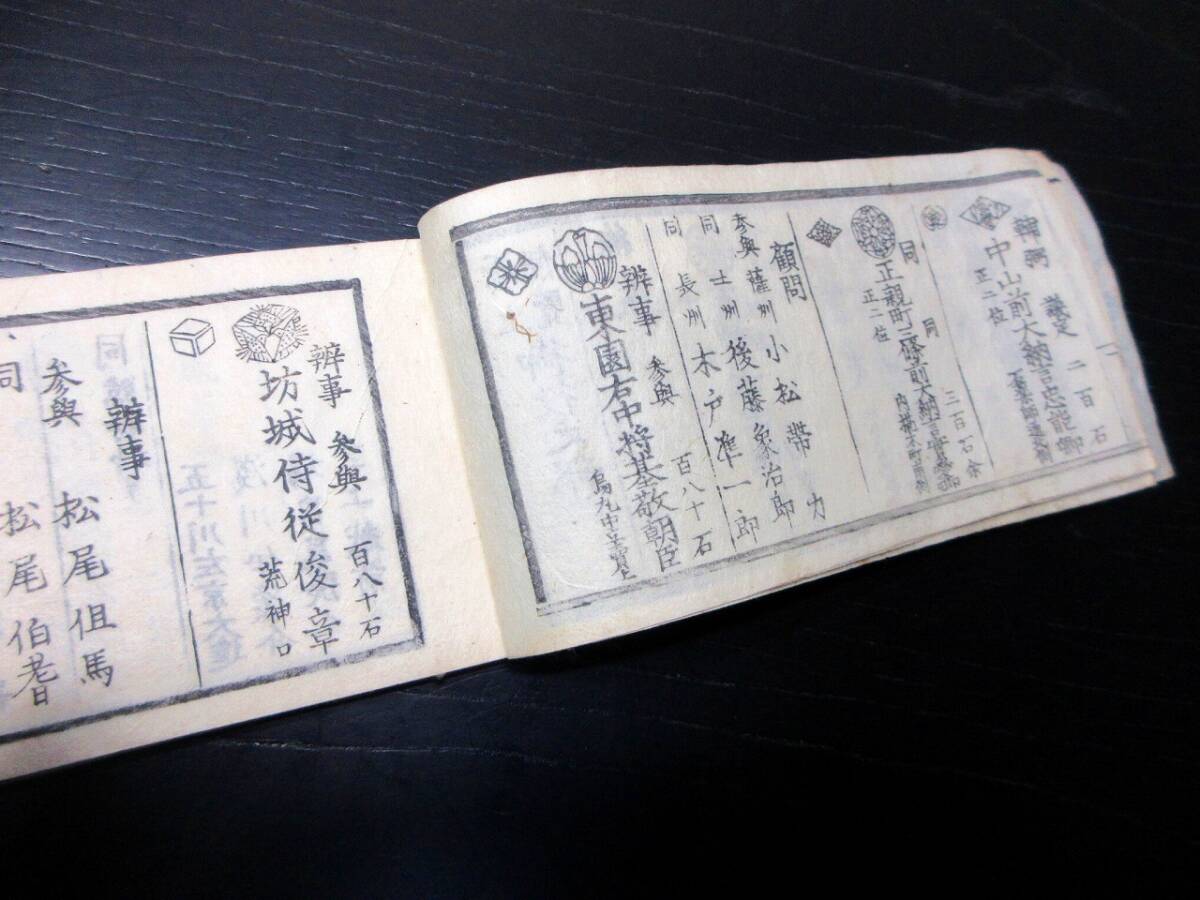 輔弼 議定 二百石
中山前大納言忠能卿
正二位 石薬師通大側
同 同 三百石余
正親町三條前大納言實愛卿
正二位
顧問
参與 薩州 小松帯刀
同 土州 後藤象治郎
同 長州 木戸準一郎
辨事 参與 百八十石
東園右中将基敬朝臣
辨事 参與 百八十石
坊城侍従俊章
荒神口
辨事
参與 松尾但馬
同 松尾伯耆